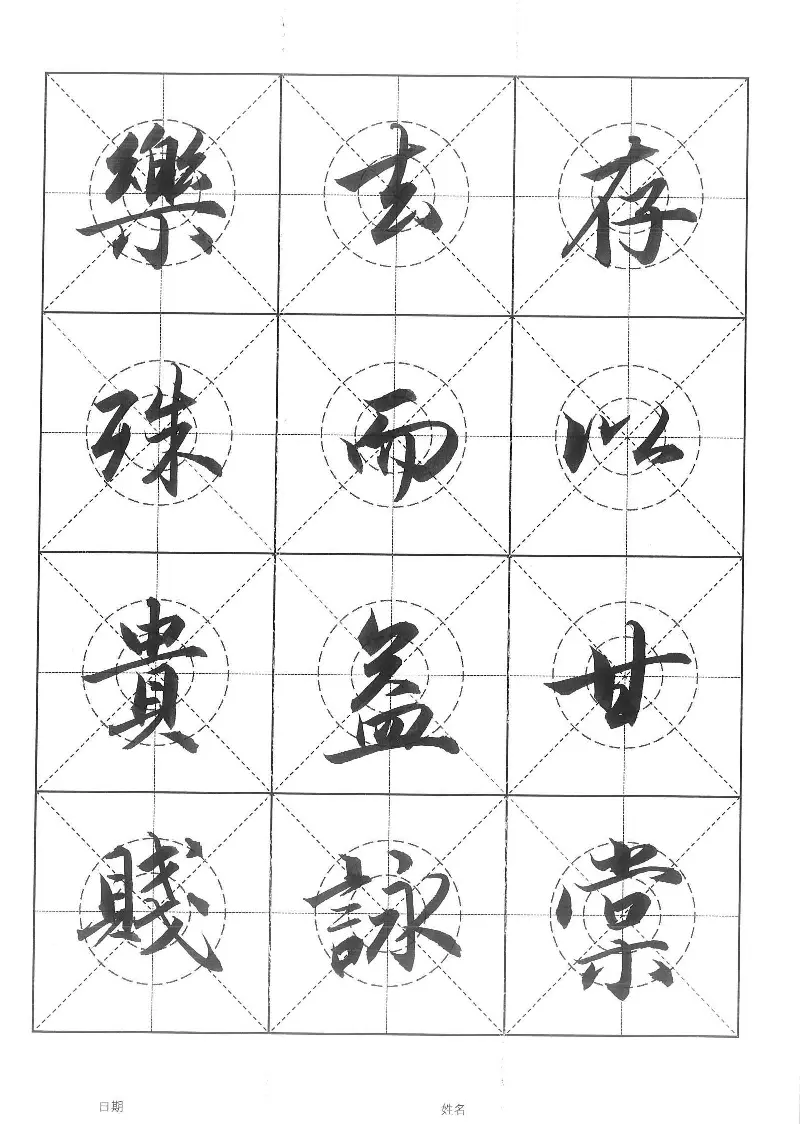 存以甘棠
去而益詠
樂殊貴賤
日期
姓名